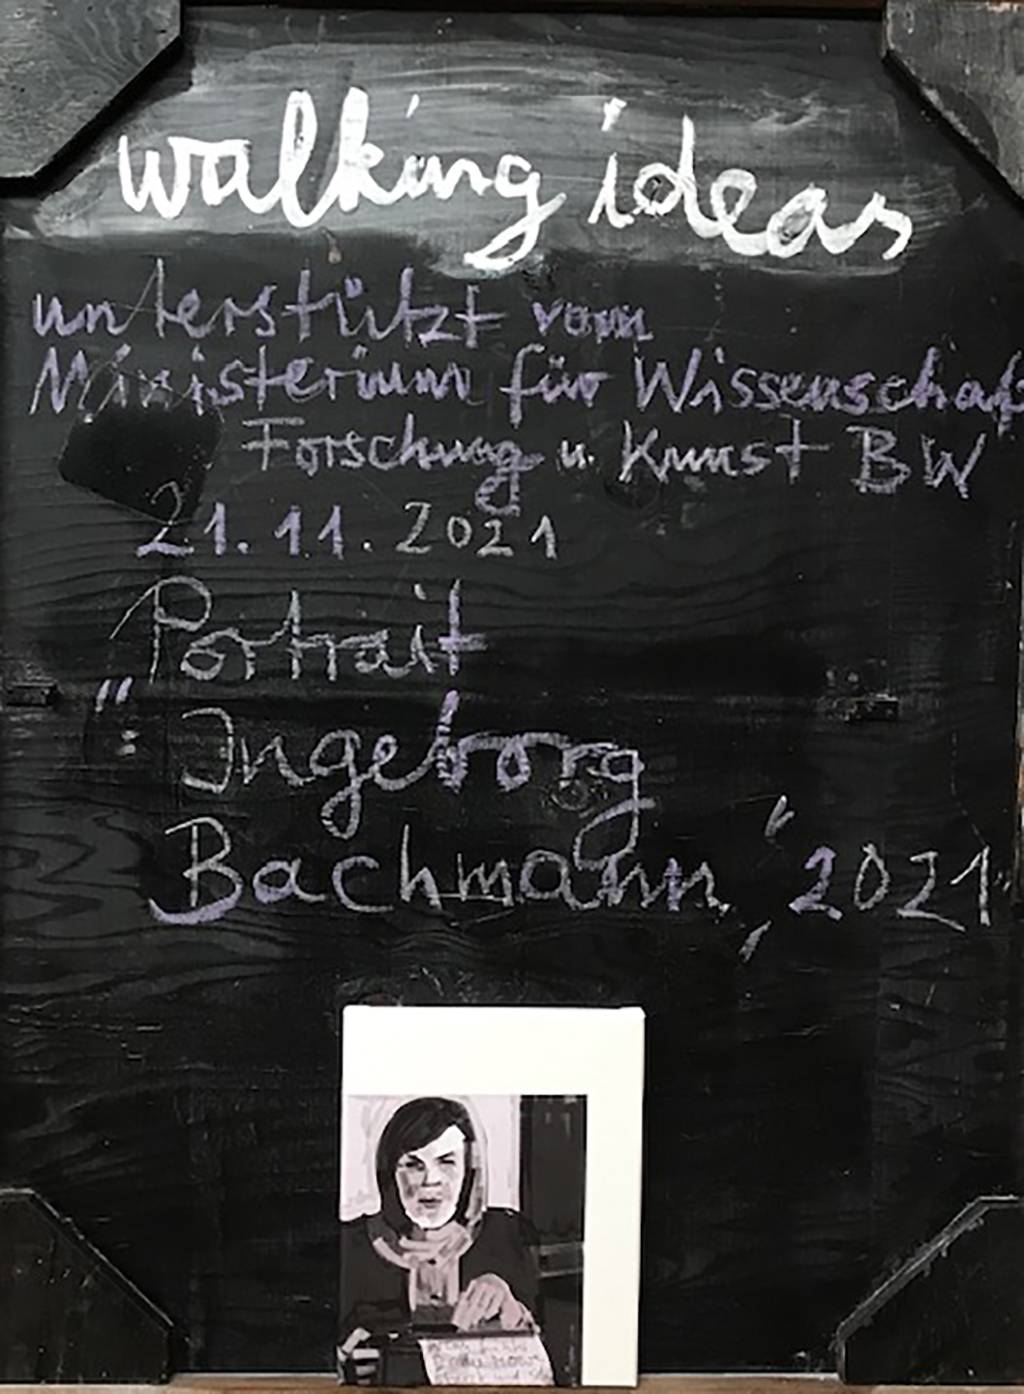 walking ideas
unterstützt vom
Ministerium für Wissenschaf
Forschung u. Kunst BW
21.11.2021
Portrait
"Ingeborg
Bachmann", 2021